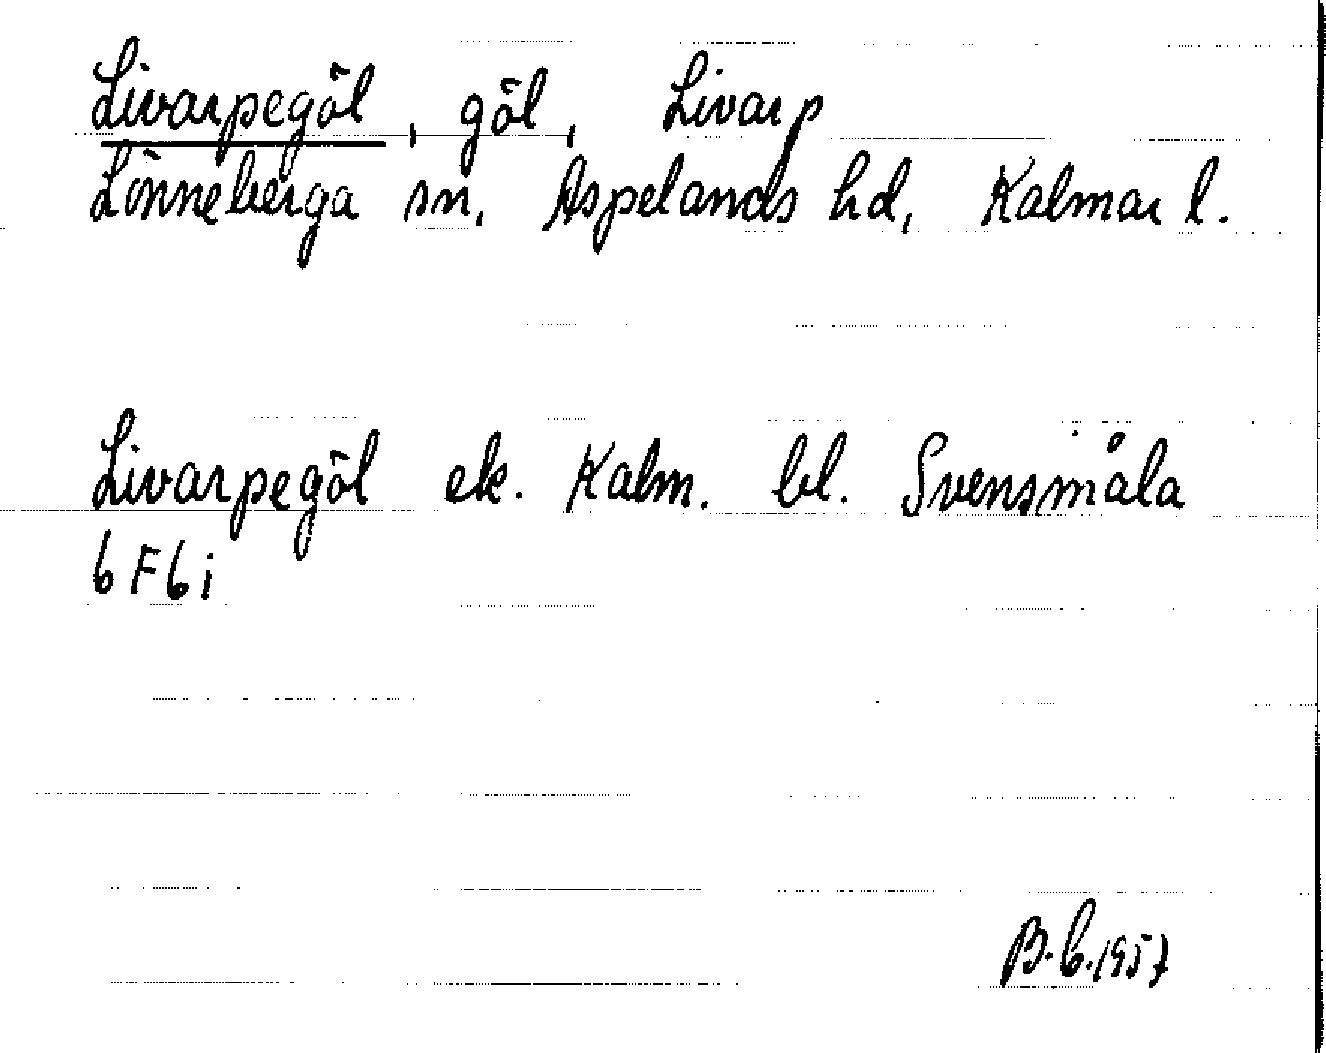 Livarpegöl, göl, Livarp
Lönneberga sn, Aspelands hd, Kalmar l.
Livarpegöl ek. Kalm. bl. Svensmåla
6 F 6 i
B.b.1957